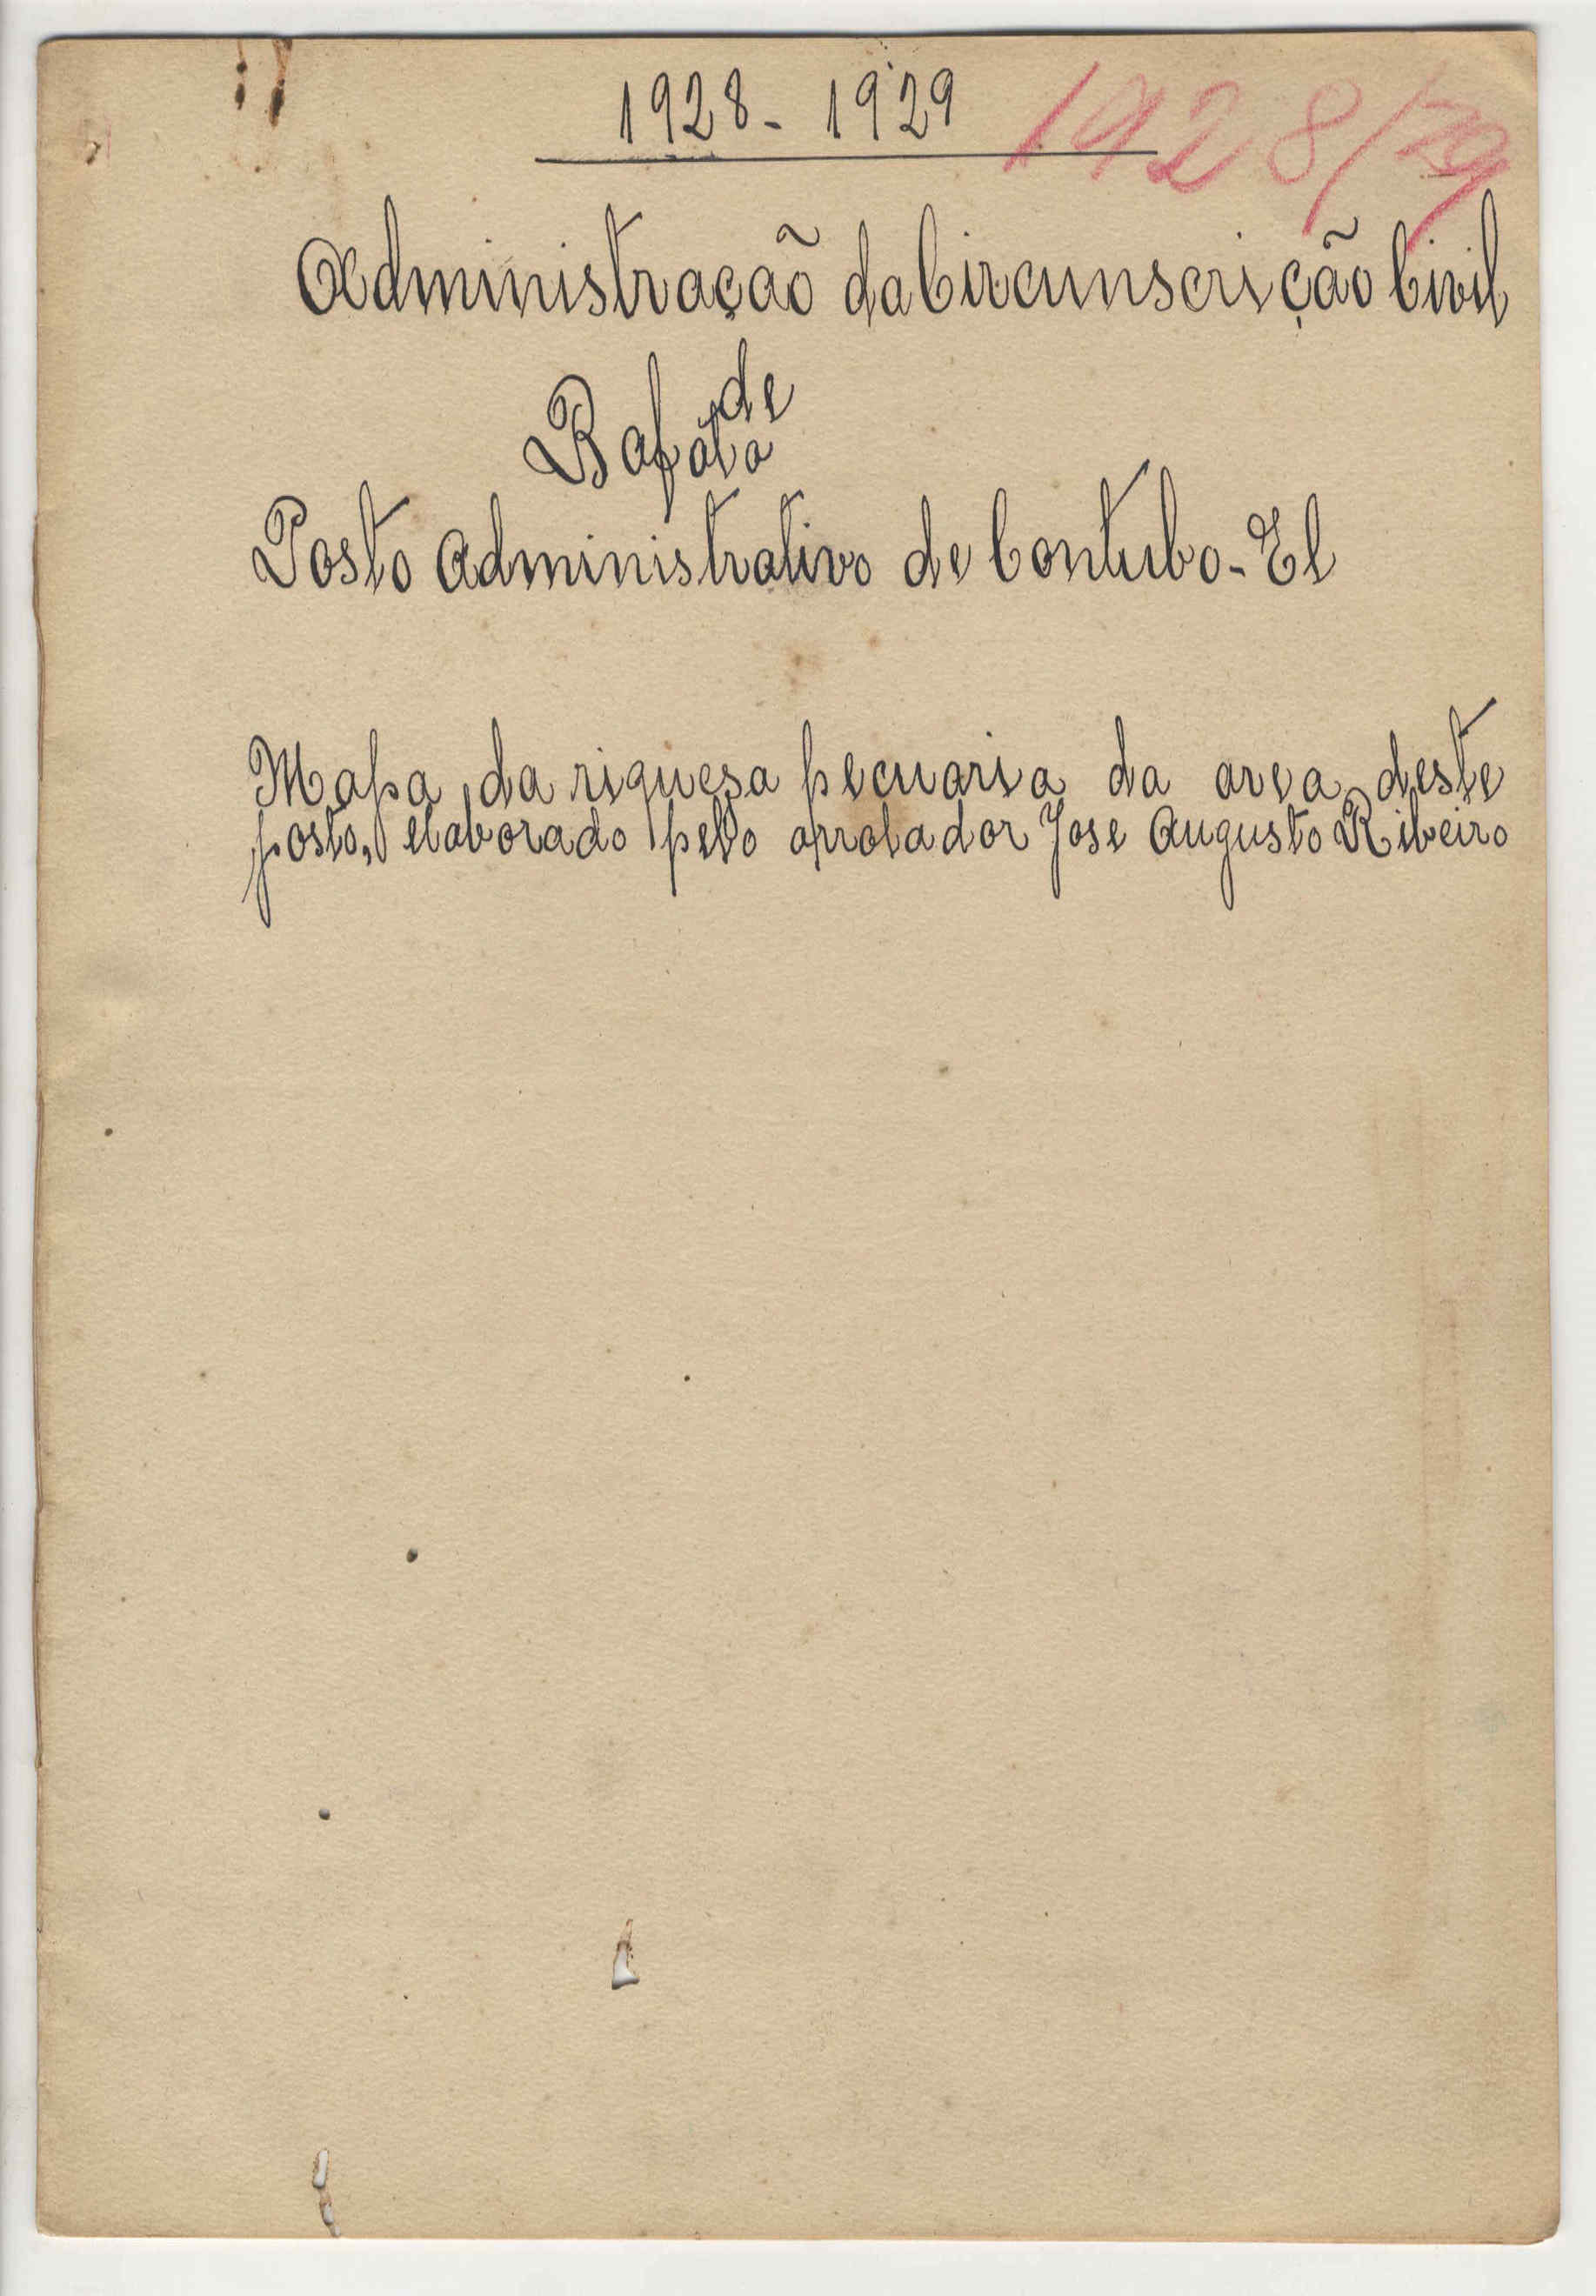 1928-1929
1928/29
Administração da Circunscrição Civil
de
Bafatá
Posto Administrativo de Contubo-El
Mapa da riquesa pecuaria da area deste
posto, elaborado pelo arrolador Jose Augusto Ribeiro